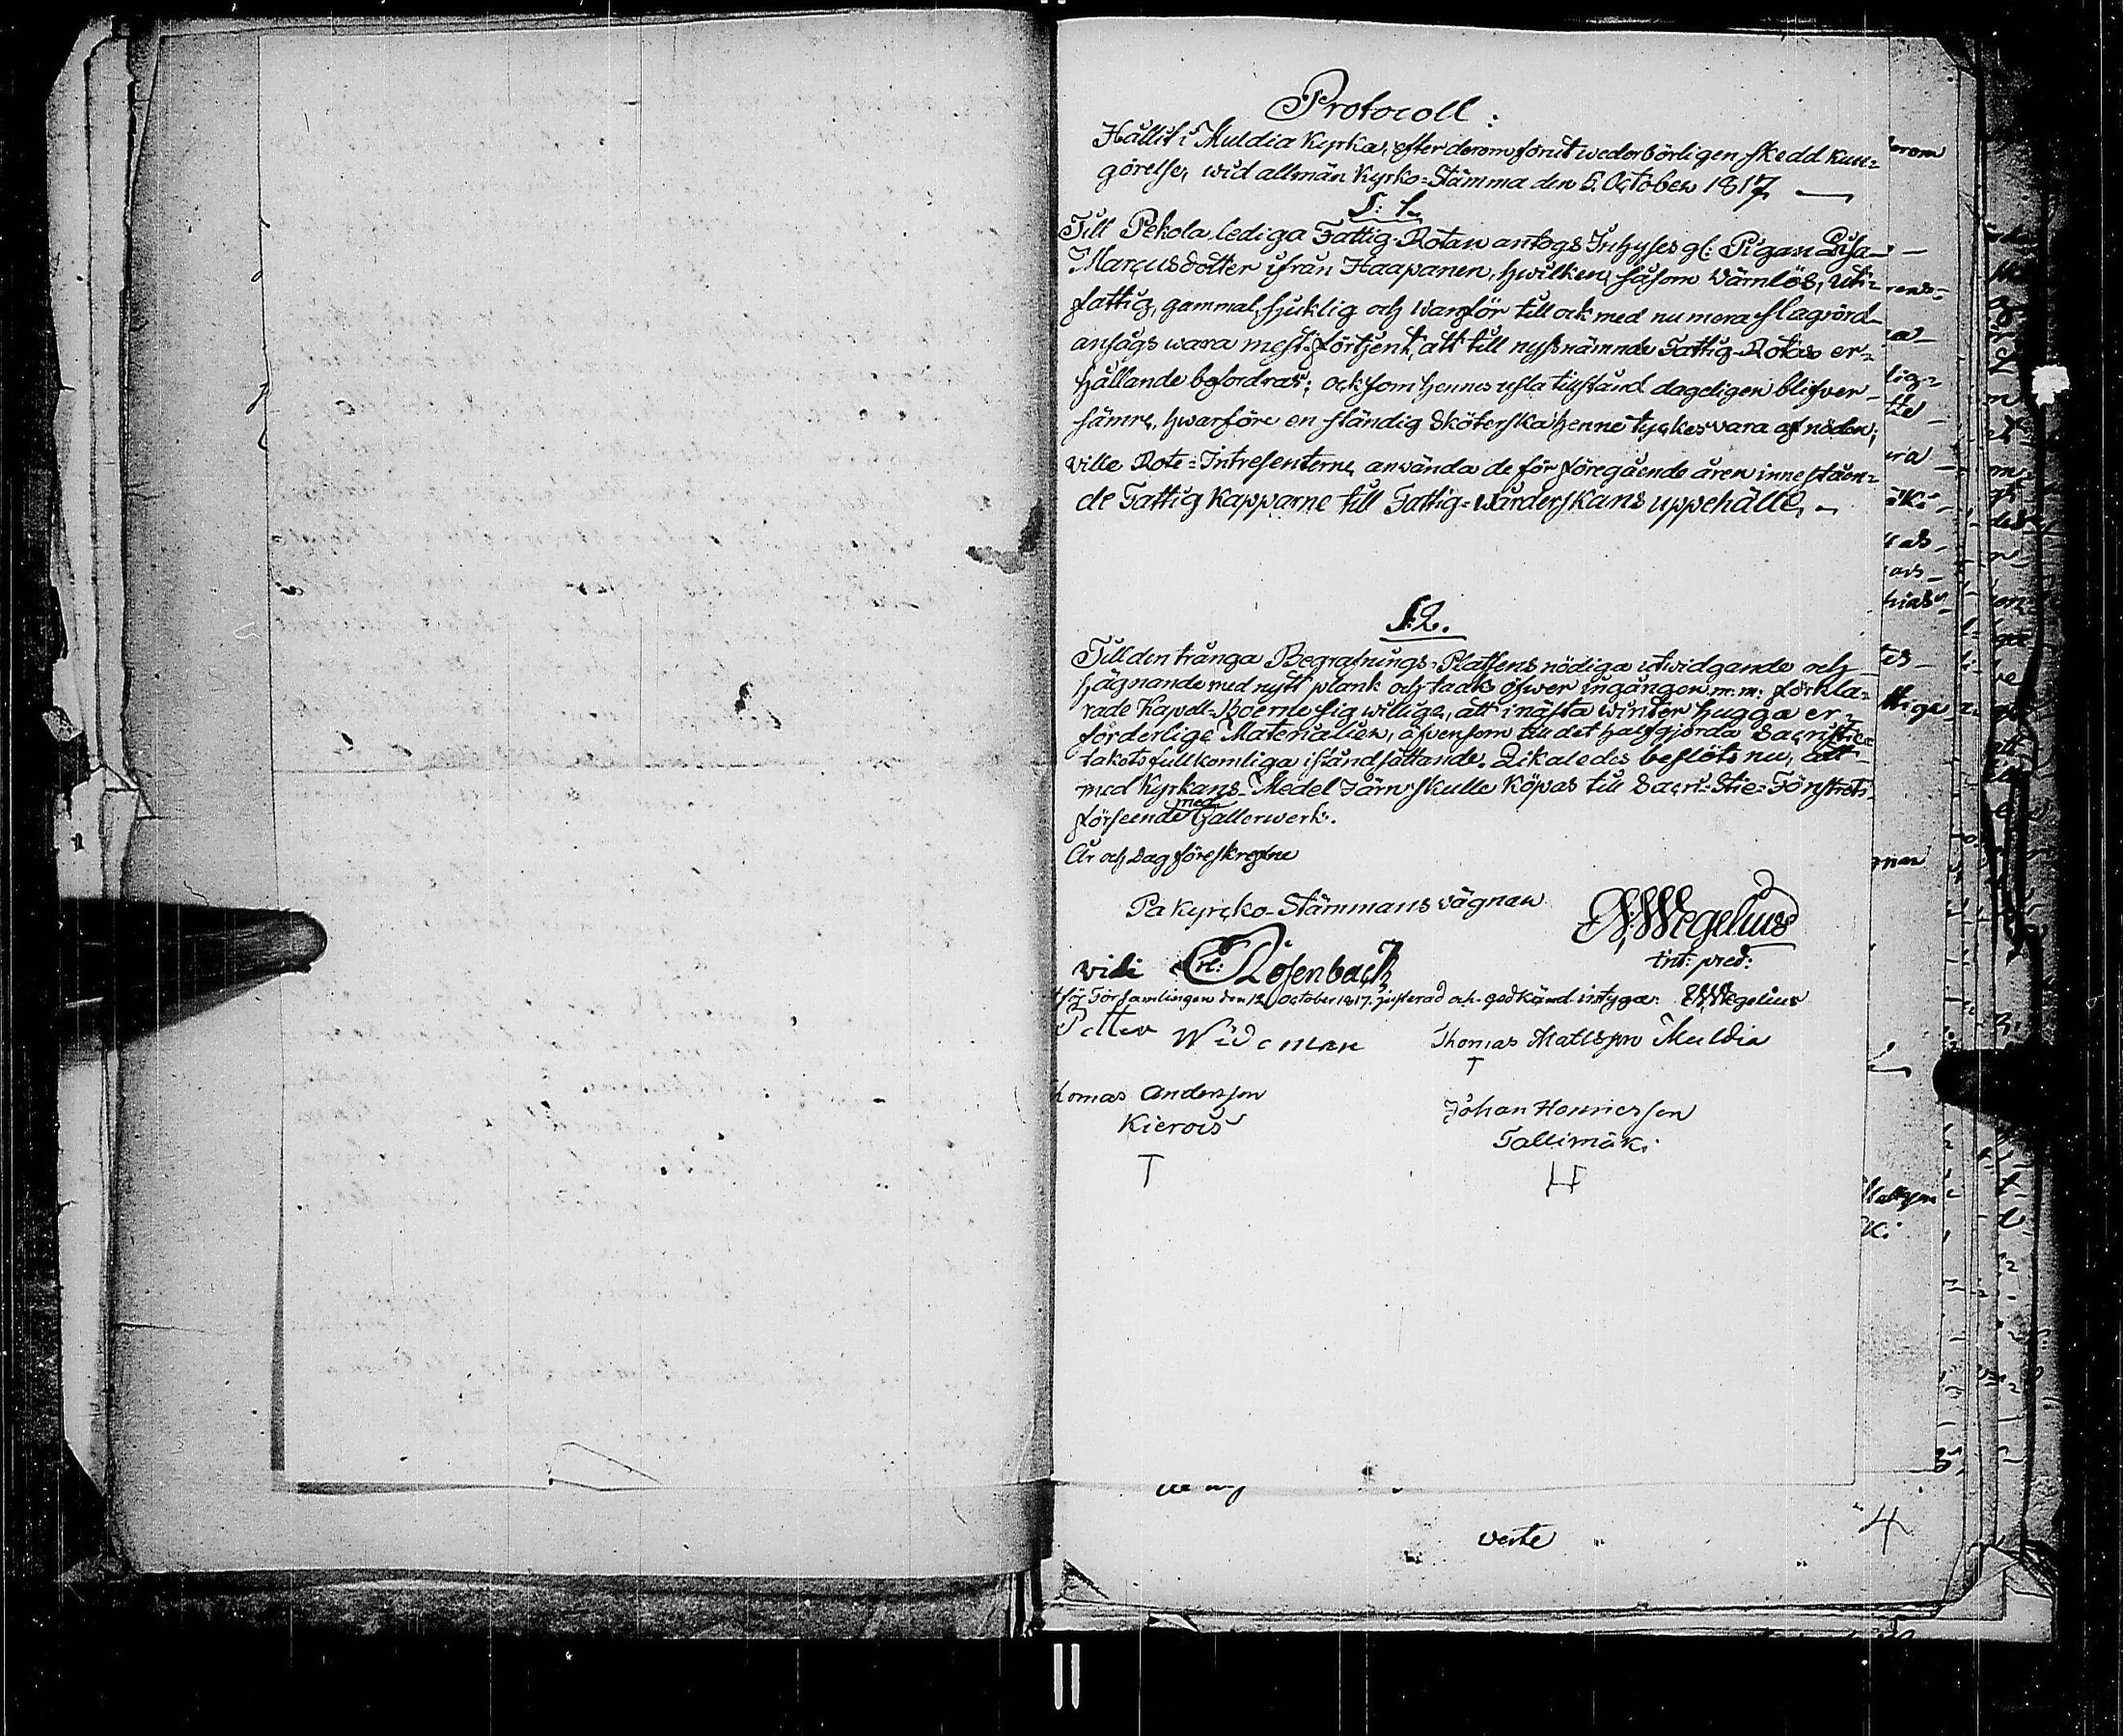 Protocoll:
Hållit i Muldia Kyrka, efter derom förut wederbörligen skedd kun=
görelse, wid allmän Kyrko=Stämma den 5 October 1817 —
§: 1.
Till Pekola lediga Fattig-Rotan antogs Inhyses gl: Pigan Lisa
Marcusdotter ifrån Haapanen, hwilken, såsom Värnlös, ut=
fattig, gammal, sjuklig och Wanför till ock med nu mera slagrörd
ansågs wara mest förtjent, att till nyssnämnde Fattig-Rotas er=
hållande befordras; ock som hennes usla tillstånd dageligen blifver
sämre, hwarföre en ständig Sköterska henne tyckes vara af nöden;
ville Rote=Intresenterne använda de för föregående åren inneståen=
de Fattig Kapparne till Fattig=Wårderskans uppehälle. —
§. 2.
Till den trånga Begrafnings=Platsens nödiga utwidgande och
hägnande med nytt plank och taak öfwer ingången m: m: förkla=
rade Kapell=Boerne sig willige, att i nästa winter hugga er=
forderlige Materialier, äfvensom till det halfgjorda Sacristie
takets fullkomliga iståndsättande. Likaledes beslöts nu, att
med Kyrkans Medel Järn skulle Köpas till Sacri=Stie=Fönstrets
förseende med Gallerwerk.
År och Dag föreskrefne
På Kyrcko-Stämmans vägnar
Wegelius
int: pred:
vidi Erl: Rosenback
för Församlingen den 12 October 1817. justerad och godkänd intygar Wegelius
Petter Wideman
Thomas Mattsson Muldia
T
Thomas Andersson
Kierois
T
Johan Henricsson
Tallimäki
H
verte
4